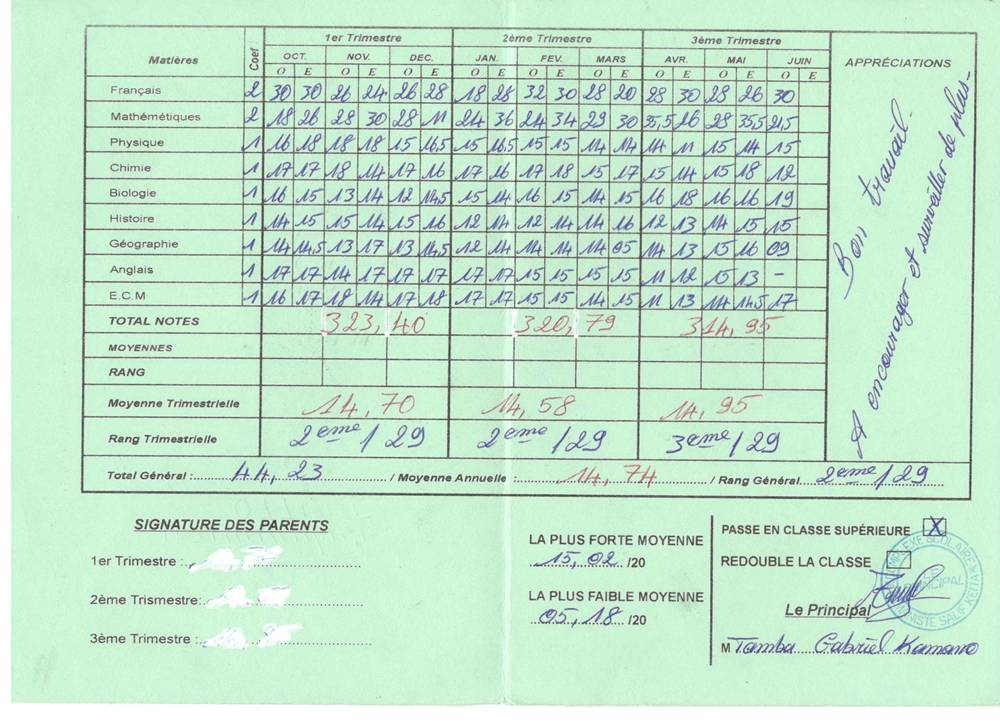 1er Trimestre 2ème Trimestre 3ème Trimestre
Matières Coef OCT. NOV. DEC. JAN. FEV. MARS AVR. MAI JUIN APPRÉCIATIONS
O E O E O E O E O E O E O E O E O E
Français 2 30 30 26 24 26 28 18 28 32 30 28 20 28 30 28 26 30
Mathématiques 2 18 26 28 30 28 11 24 36 24 34 29 30 35,5 26 28 35,5 21,5
Physique 1 16 18 18 18 15 16,5 15 16,5 15 15 14 14 14 11 15 14 15
Chimie 1 17 17 18 14 17 16 17 16 17 18 15 17 15 14 15 18 12
Biologie 1 16 15 13 14 12 14,5 15 14 16 15 14 15 16 18 16 16 19
Histoire 1 14 15 15 14 15 16 12 14 12 14 14 16 12 13 14 15 15
Géographie 1 14 14,5 13 17 13 14,5 12 14 14 14 14 05 14 13 15 16 09
Anglais 1 17 17 14 17 17 17 17 17 15 15 15 15 11 12 15 13 -
E.C.M 1 16 17 18 14 17 18 17 17 15 15 14 15 11 13 14 14,5 17
TOTAL NOTES 323,40 320,79 314,95
MOYENNES
RANG
Moyenne Trimestrielle 14,70 14,58 14,95
Rang Trimestrielle 2eme/29 2eme/29 3eme/29
Bon travail.
A encourager et surveiller de plus-
Total Général :44,23 / Moyenne Annuelle :14,74 / Rang Général 2eme/29
SIGNATURE DES PARENTS
1er Trimestre :
2ème Trismestre:
3ème Trimestre :
LA PLUS FORTE MOYENNE
15,02 /20
LA PLUS FAIBLE MOYENNE
05,18 /20
PASSE EN CLASSE SUPÉRIEURE X
REDOUBLE LA CLASSE
Le Principal
M Tamba Gabriel Kamano